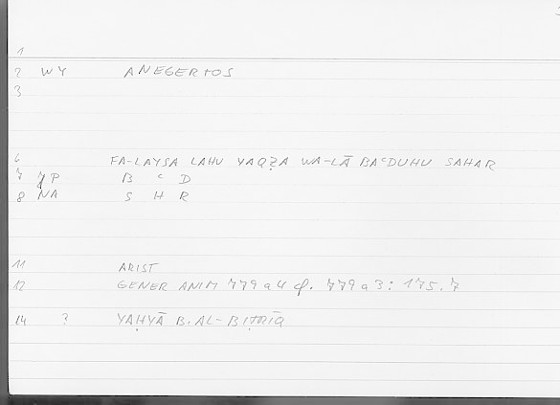 1
2 WY ANEGERTOS
3
6 FA-LAYSA LAHU YAQẒA WA-LĀ BAʿDUHU SAHAR
7 JP B ʿ D
8 NA S H R
11 ARIST
12 GENER ANIM 779 a 4 cf. 779 a 3 : 175.7
14 ? YAḤYĀ B. AL-BIṬRĪQ